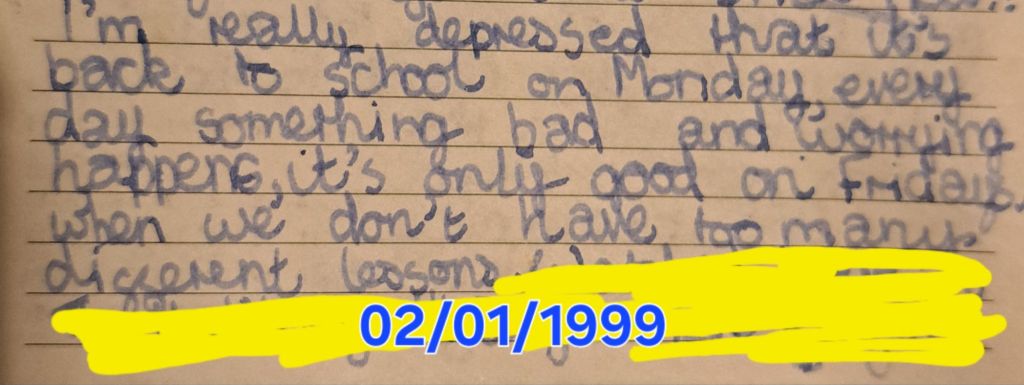 I'm really depressed that it's
back to school on Monday, every
day something bad and worrying
happens, it's only good on Fridays,
when we don't have too many
different lessons
02/01/1999